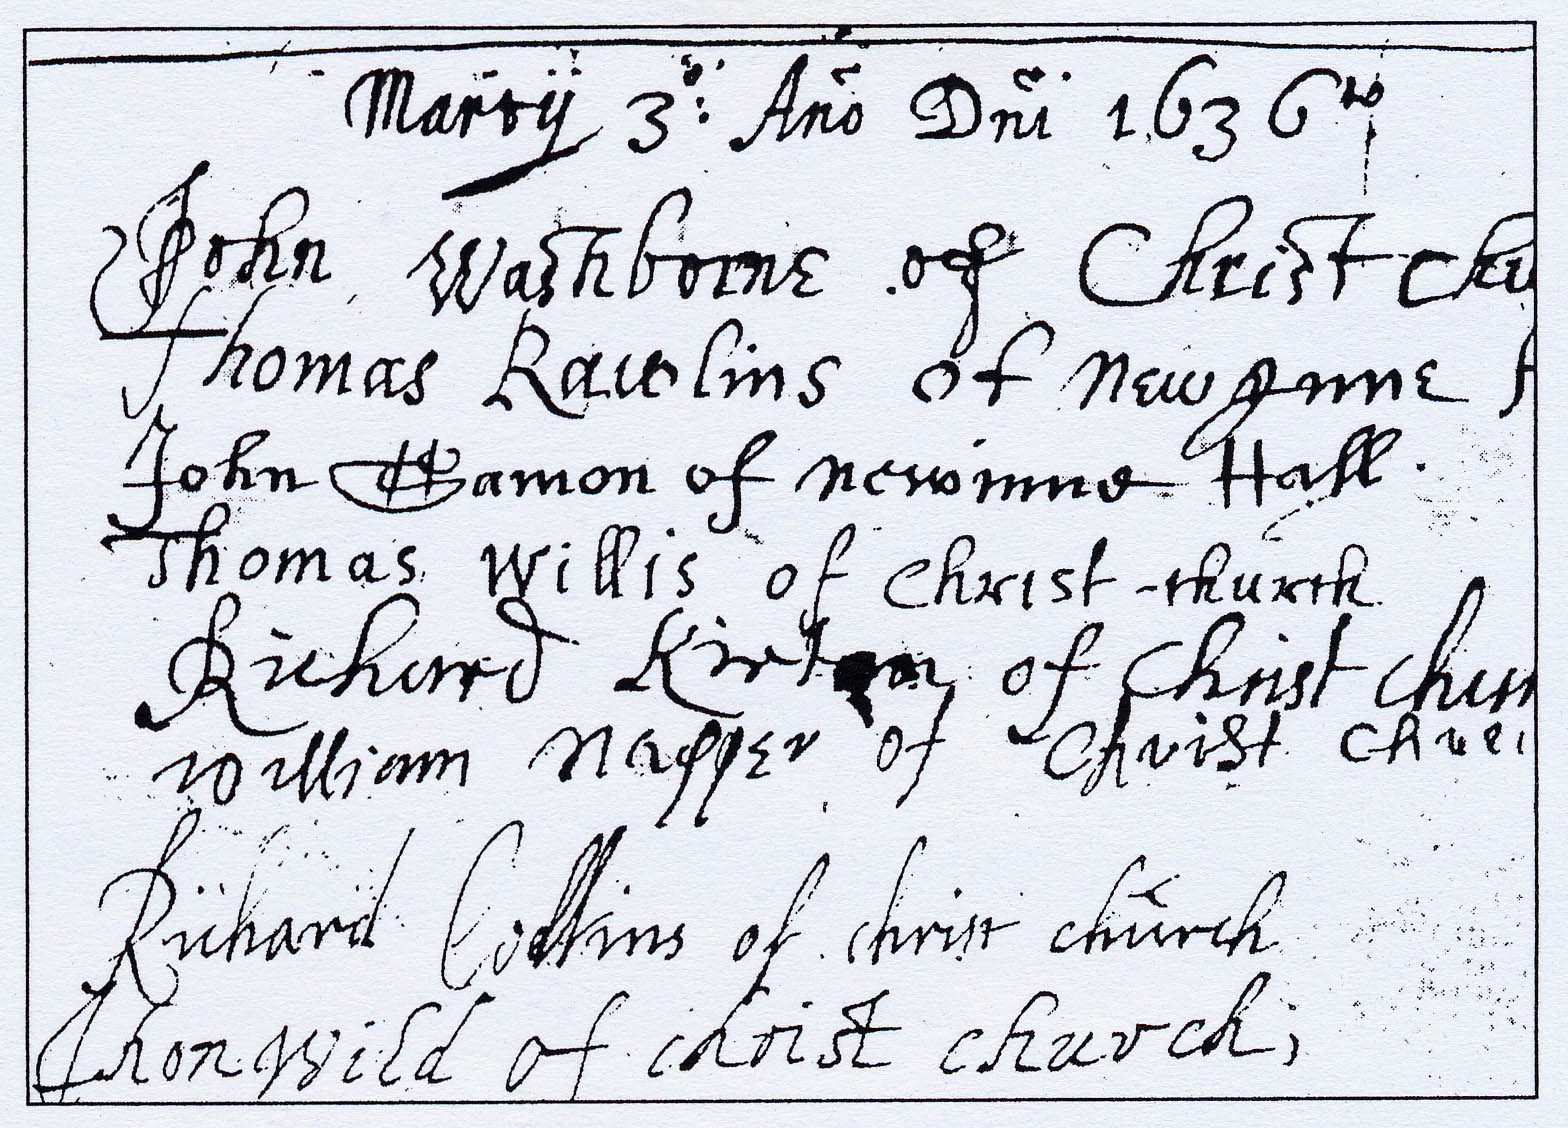 Martij 3º: Año Dñi 1636to
John Washborne of Christ Chu
Thomas Rawlins of New Inne H
John Gamon of Newinne Hall.
Thomas Willis of Christ-church
Richard Kirton of Christ Chur
William Napper of Christ Churc
Richard Collins of christ church
Thon Wild of christ church;